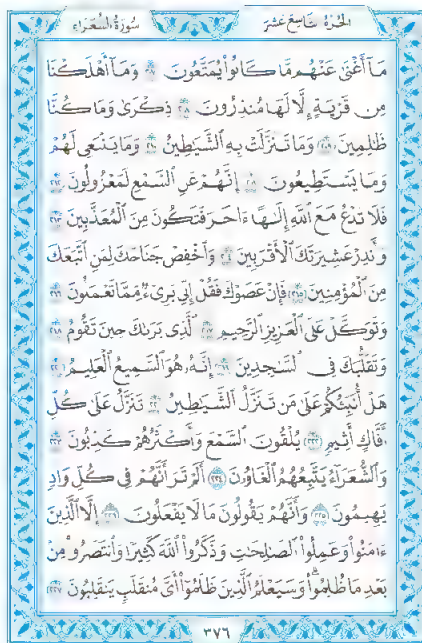 الجزء التاسع عشر
سورة الشعراء
مَآ أَغْنَىٰ عَنْهُم مَّا كَانُوا۟ يُمَتَّعُونَ ۝٢٠٧ وَمَآ أَهْلَكْنَا
مِن قَرْيَةٍ إِلَّا لَهَا مُنذِرُونَ ۝٢٠٨ ذِكْرَىٰ وَمَا كُنَّا
ظَٰلِمِينَ ۝٢٠٩ وَمَا تَنَزَّلَتْ بِهِ ٱلشَّيَٰطِينُ ۝٢١٠ وَمَا يَنۢبَغِى لَهُمْ
وَمَا يَسْتَطِيعُونَ ۝٢١١ إِنَّهُمْ عَنِ ٱلسَّمْعِ لَمَعْزُولُونَ ۝٢١٢
فَلَا تَدْعُ مَعَ ٱللَّهِ إِلَٰهًا ءَاخَرَ فَتَكُونَ مِنَ ٱلْمُعَذَّبِينَ ۝٢١٣
وَأَنذِرْ عَشِيرَتَكَ ٱلْأَقْرَبِينَ ۝٢١٤ وَٱخْفِضْ جَنَاحَكَ لِمَنِ ٱتَّبَعَكَ
مِنَ ٱلْمُؤْمِنِينَ ۝٢١٥ فَإِنْ عَصَوْكَ فَقُلْ إِنِّى بَرِىٓءٌ مِّمَّا تَعْمَلُونَ ۝٢١٦
وَتَوَكَّلْ عَلَى ٱلْعَزِيزِ ٱلرَّحِيمِ ۝٢١٧ ٱلَّذِى يَرَىٰكَ حِينَ تَقُومُ ۝٢١٨
وَتَقَلُّبَكَ فِى ٱلسَّٰجِدِينَ ۝٢١٩ إِنَّهُۥ هُوَ ٱلسَّمِيعُ ٱلْعَلِيمُ ۝٢٢٠
هَلْ أُنَبِّئُكُمْ عَلَىٰ مَن تَنَزَّلُ ٱلشَّيَٰطِينُ ۝٢٢١ تَنَزَّلُ عَلَىٰ كُلِّ
أَفَّاكٍ أَثِيمٍ ۝٢٢٢ يُلْقُونَ ٱلسَّمْعَ وَأَكْثَرُهُمْ كَٰذِبُونَ ۝٢٢٣
وَٱلشُّعَرَآءُ يَتَّبِعُهُمُ ٱلْغَاوُۥنَ ۝٢٢٤ أَلَمْ تَرَ أَنَّهُمْ فِى كُلِّ وَادٍ
يَهِيمُونَ ۝٢٢٥ وَأَنَّهُمْ يَقُولُونَ مَا لَا يَفْعَلُونَ ۝٢٢٦ إِلَّا ٱلَّذِينَ
ءَامَنُوا۟ وَعَمِلُوا۟ ٱلصَّٰلِحَٰتِ وَذَكَرُوا۟ ٱللَّهَ كَثِيرًا وَٱنتَصَرُوا۟ مِنۢ
بَعْدِ مَا ظُلِمُوا۟ ۗ وَسَيَعْلَمُ ٱلَّذِينَ ظَلَمُوٓا۟ أَىَّ مُنقَلَبٍ يَنقَلِبُونَ ۝٢٢٧
٣٧٦